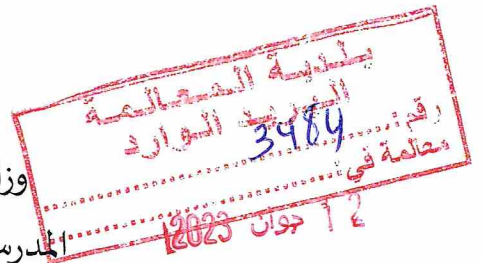 بلدية المعالمة
البريد الوارد
رقم: 3484
معالمة في:
12 جوان 2023
وزا
المدرس